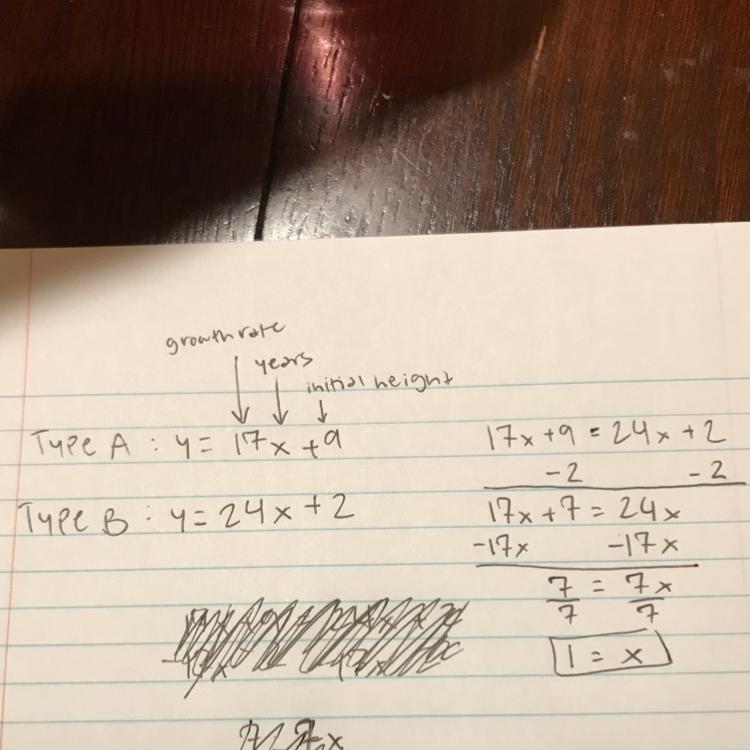 growth rate
years
initial height
Type A : y = 17x + 9
Type B : y = 24x + 2
17x + 9 = 24x + 2
-2 -2
17x + 7 = 24x
-17x -17x
7 = 7x
7 7
1 = x